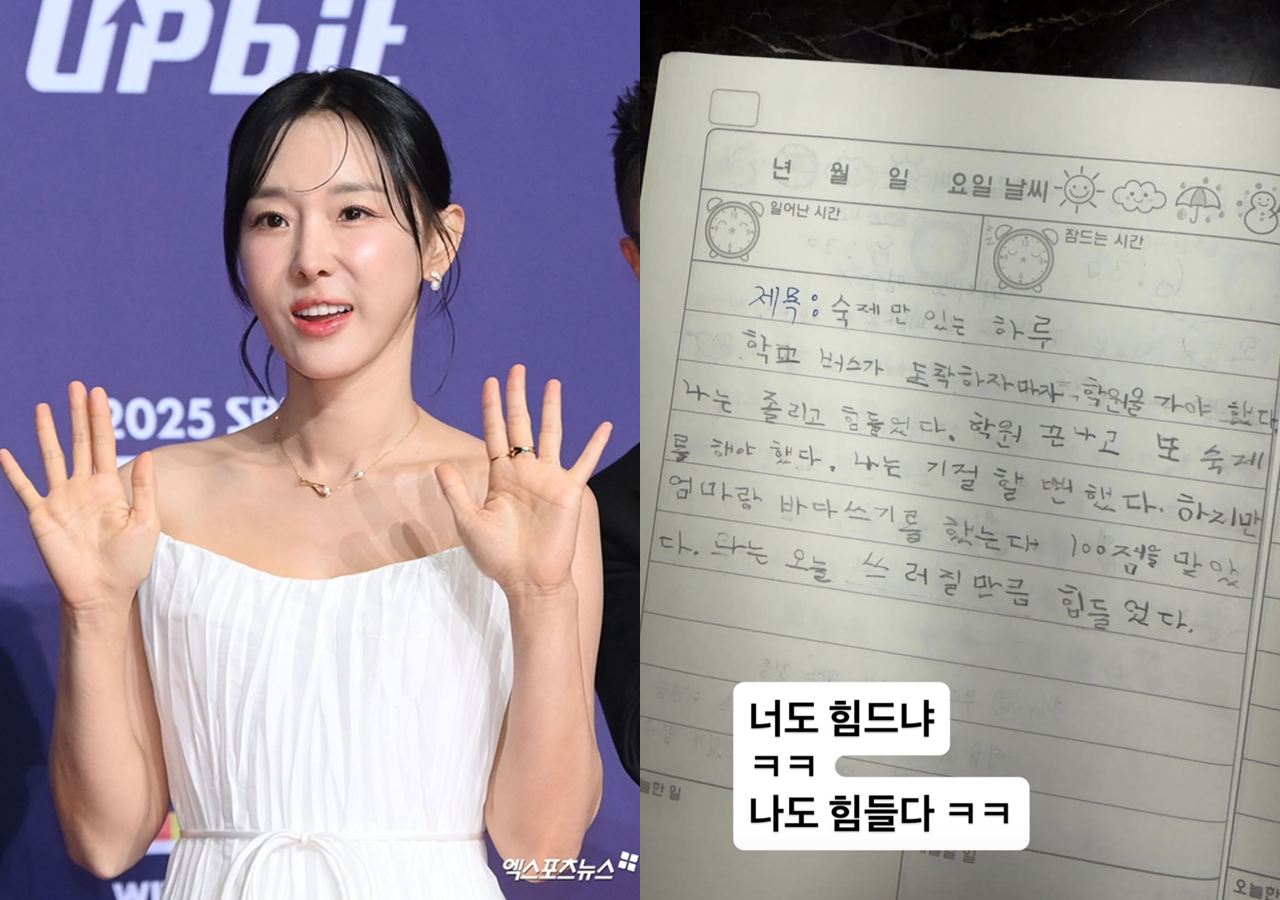 upbit
2025 SB
엑스포츠뉴스
년 월 일 요일 날씨
일어난 시간
잠드는 시간
제목: 숙제만 있는 하루
학교 버스가 도착하자마자 학원을 가야 했다
나는 졸리고 힘들었다. 학원 끈나고 또 숙제
를 해야 했다. 나는 기절 할 뻔 했다. 하지만
엄마랑 바다쓰기를 했는다 100점을 맞았
다. 나는 오늘 쓰러질만큼 힘들었다.
너도 힘드냐
ㅋㅋ
나도 힘들다 ㅋㅋ
늘한 일
오늘한